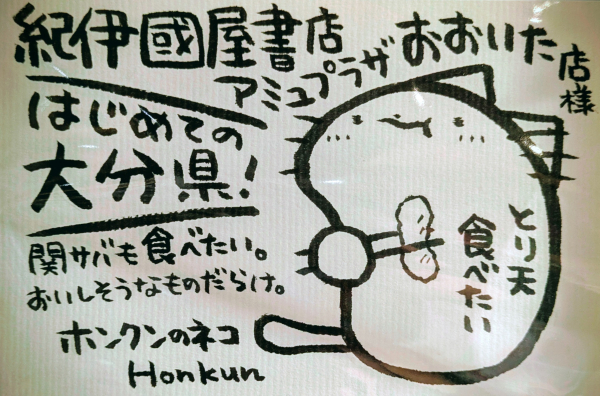 紀伊國屋書店
アミュプラザおおいた店様
はじめての
大分県!
関サバも食べたい。
おいしそうなものだらけ。
ホンクンのネコ
Honkun
とり天
食べたい